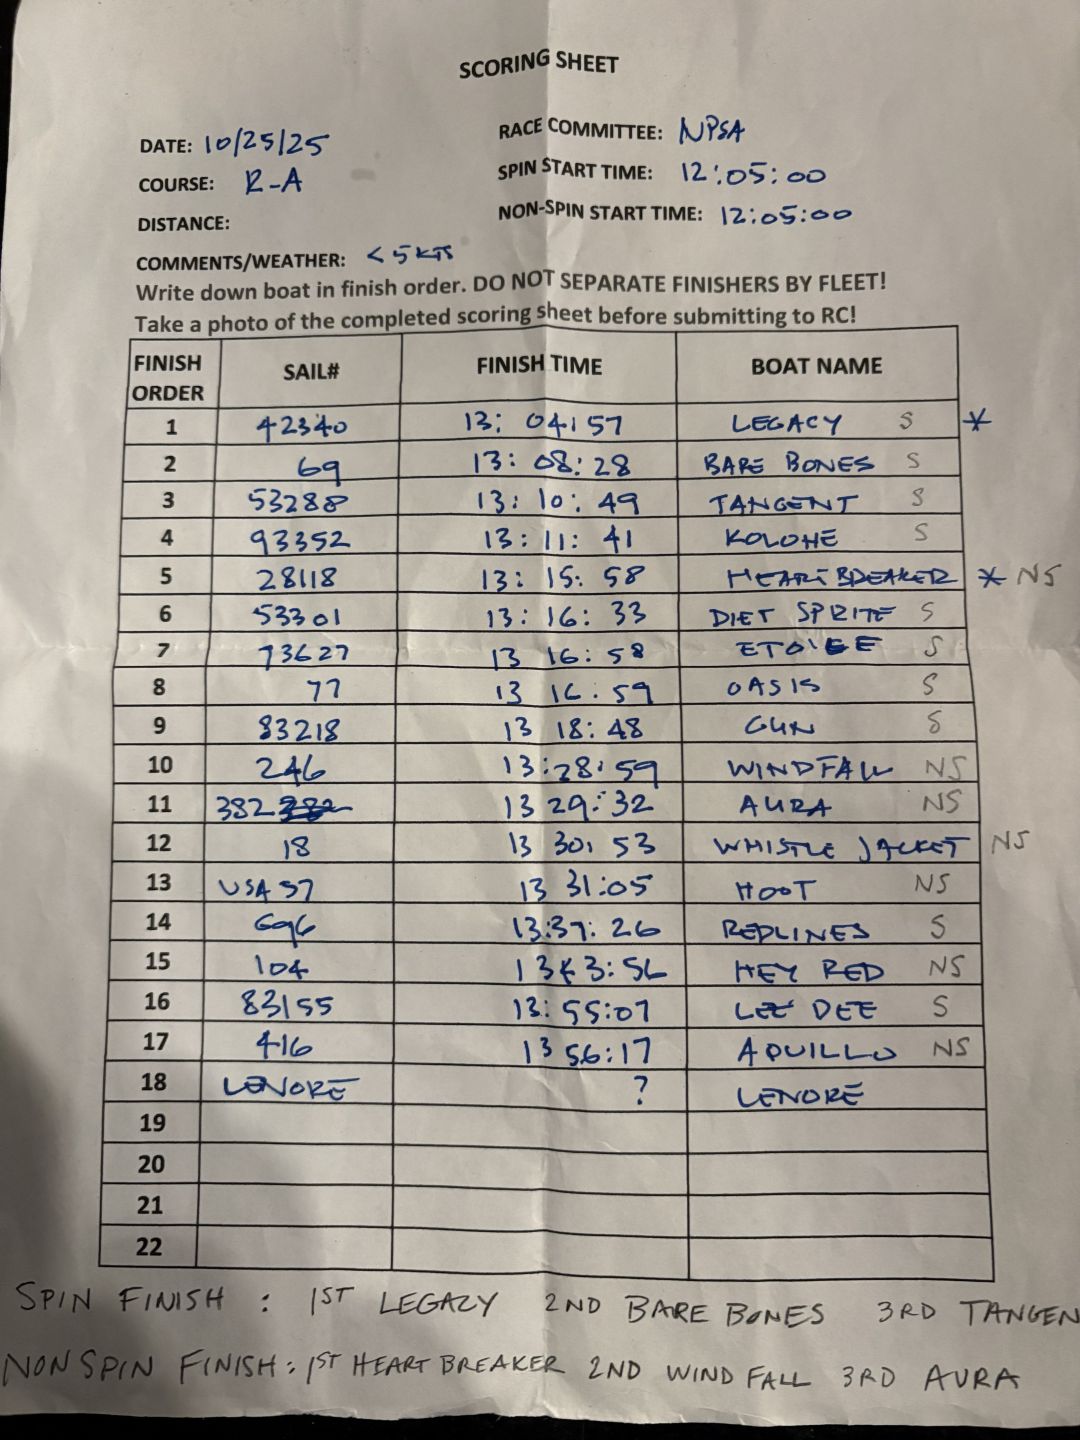 SCORING SHEET
DATE: 10/25/25
RACE COMMITTEE: NPSA
COURSE: R-A
SPIN START TIME: 12:05:00
DISTANCE:
NON-SPIN START TIME: 12:05:00
COMMENTS/WEATHER: < 5 KTS
Write down boat in finish order. DO NOT SEPARATE FINISHERS BY FLEET!
Take a photo of the completed scoring sheet before submitting to RC!
FINISH ORDER SAIL# FINISH TIME BOAT NAME
1 42340 13: 04:57 LEGACY S *
2 69 13: 08:28 BARE BONES S
3 53288 13: 10: 49 TANGENT S
4 93352 13: 11: 41 KOLOHE S
5 28118 13: 15: 58 HEARTBREAKER * NS
6 53301 13: 16: 33 DIET SPRITE S
7 73627 13 16: 58 S
8 77 13 16: 59 OASIS S
9 83218 13 18: 48 GUN S
10 246 13:28:59 WINDFALL NS
11 382 13 29: 32 AURA NS
12 18 13 30: 53 WHISTLE JACKET NS
13 USA 37 13 31:05 HOOT NS
14 696 13:37: 26 REDLINES S
15 104 13 43:56 HEY RED NS
16 83155 13: 55:07 LEE DEE S
17 416 13 56:17 AQUILLO NS
18 LENORE ? LENORE
19
20
21
22
SPIN FINISH : 1ST LEGACY 2ND BARE BONES 3RD TANGEN
NON SPIN FINISH: 1ST HEART BREAKER 2ND WIND FALL 3RD AURA